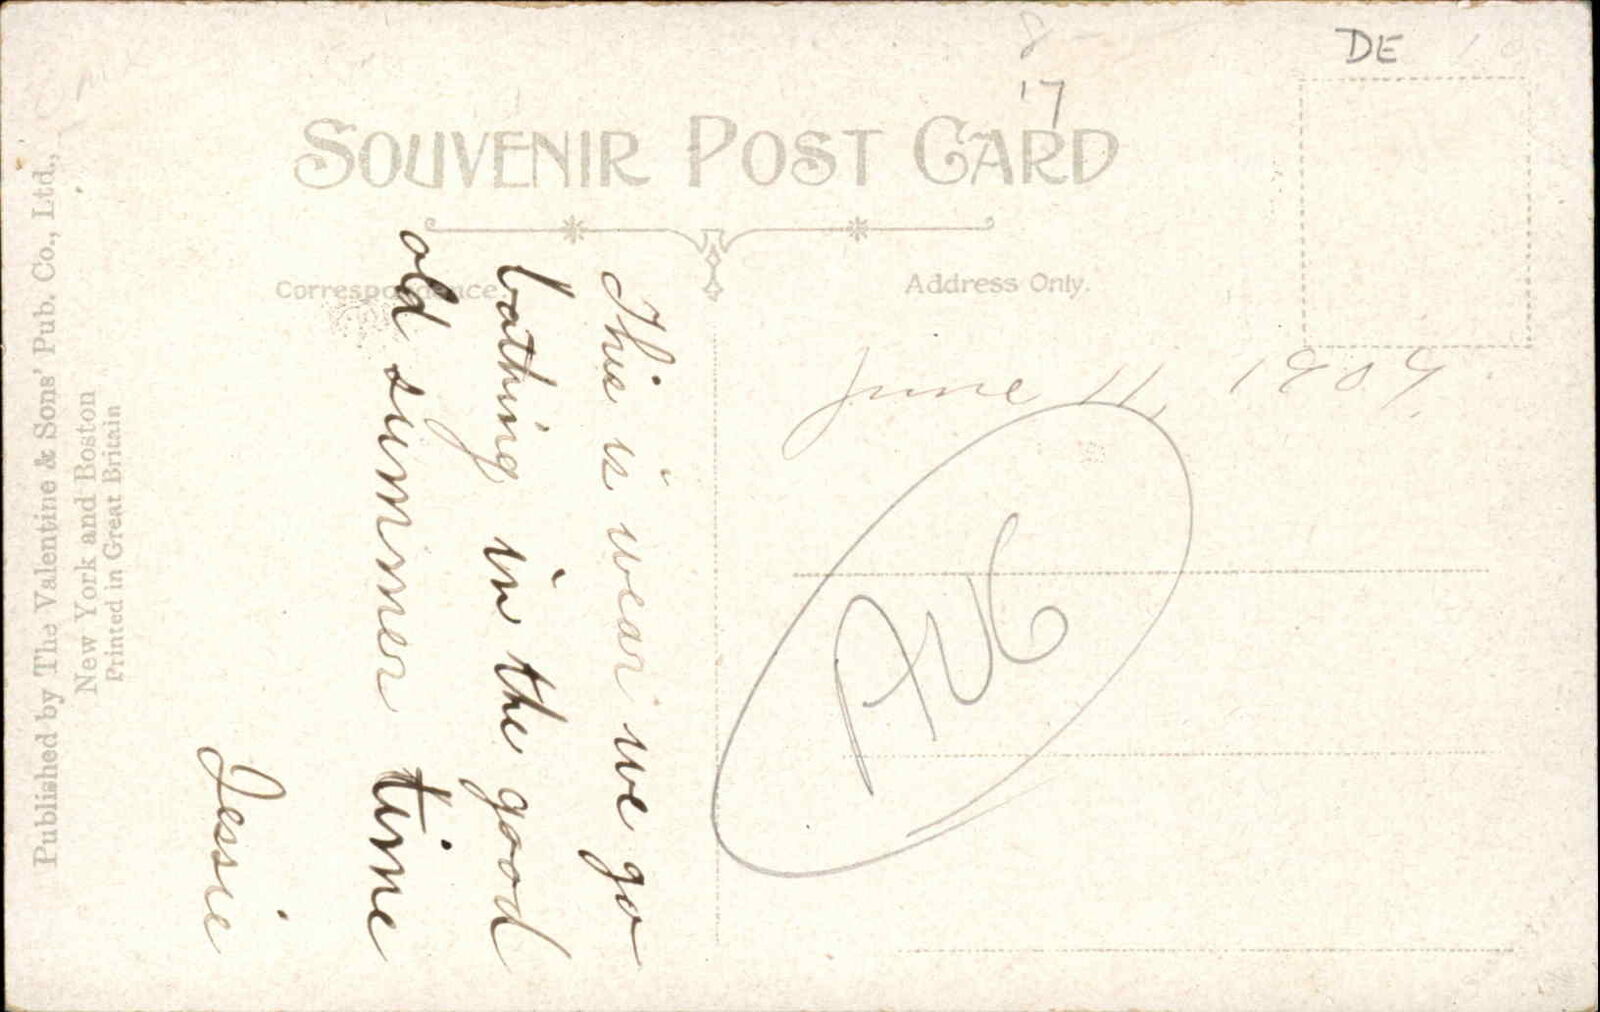 DE
'7
SOUVENIR POST CARD
Correspondence
Address Only.
June 11, 1909.
This is wear we go
bathing in the good
old summer time
Jessie
Published by The Valentine & Sons' Pub. Co., Ltd.,
New York and Boston
Printed in Great Britain